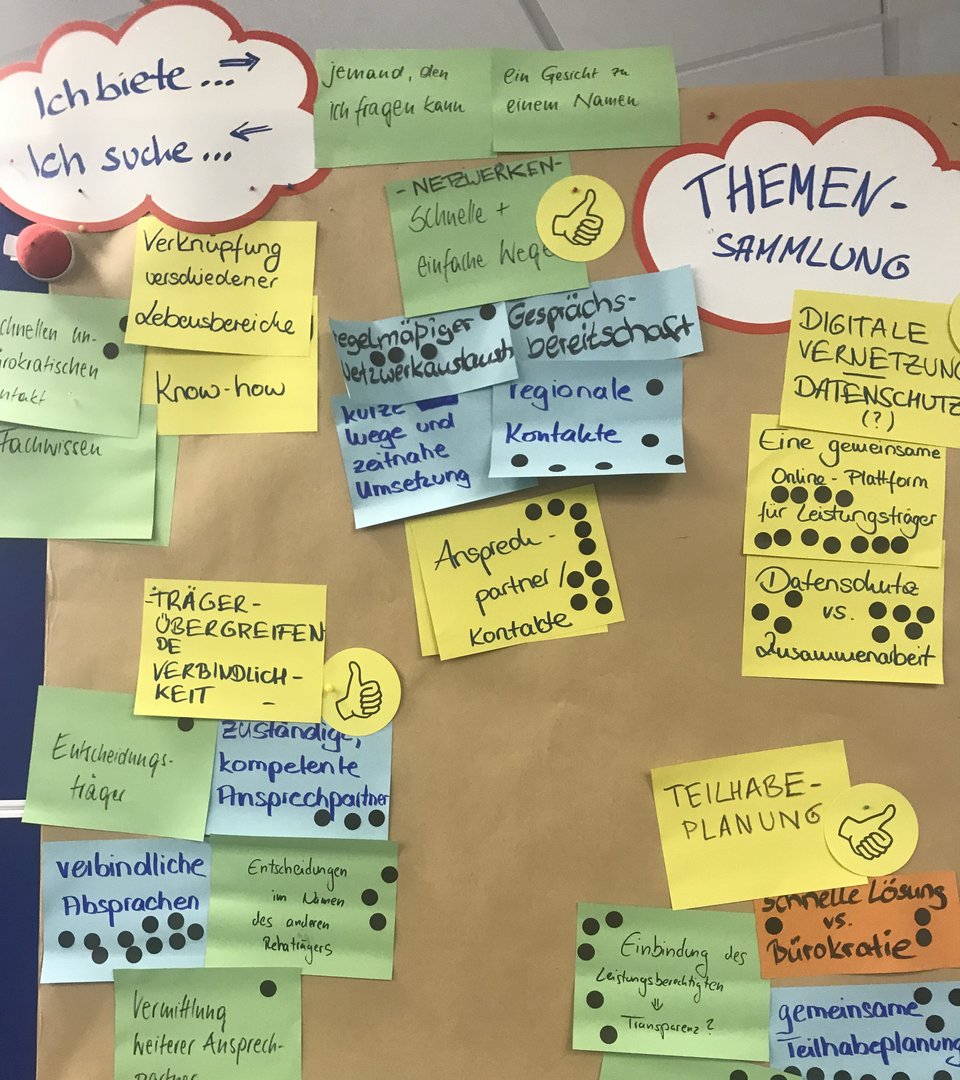 Ich biete...
Ich suche...
jemand, den
ich fragen kann
ein Gesicht zu
einem Namen
- NETZWERKEN -
Schnelle +
einfache Wege
THEMEN-
SAMMLUNG
Verknüpfung
verschiedener
Lebensbereiche
Know-how
chnellen un-
rokratischen
ntakt
Fachwissen
egelmäßiger
Netzwerkaustausch
Gesprächs-
bereitschaft
kurze
Wege und
zeitnahe
Umsetzung
regionale
Kontakte
Ansprech-
partner /
Kontakte
DIGITALE
VERNETZUNG
DATENSCHUTZ
(?)
Eine gemeinsame
Online-Plattform
für Leistungsträger
Datenschutz
vs.
Zusammenarbeit
-TRÄGER-
ÜBERGREIFEN
DE
VERBINDLICH-
KEIT -
Entscheidungs-
träger
zuständige,
kompetente
Ansprechpartner
verbindliche
Absprachen
Entscheidungen
im Namen
des anderen
Rehaträgers
Vermittlung
weiterer Ansprech-
partner
TEILHABE-
PLANUNG
schnelle Lösung
vs.
Bürokratie
Einbindung des
Leistungsberechtigten
⇓
Transparenz?
gemeinsame
Teilhabeplanung